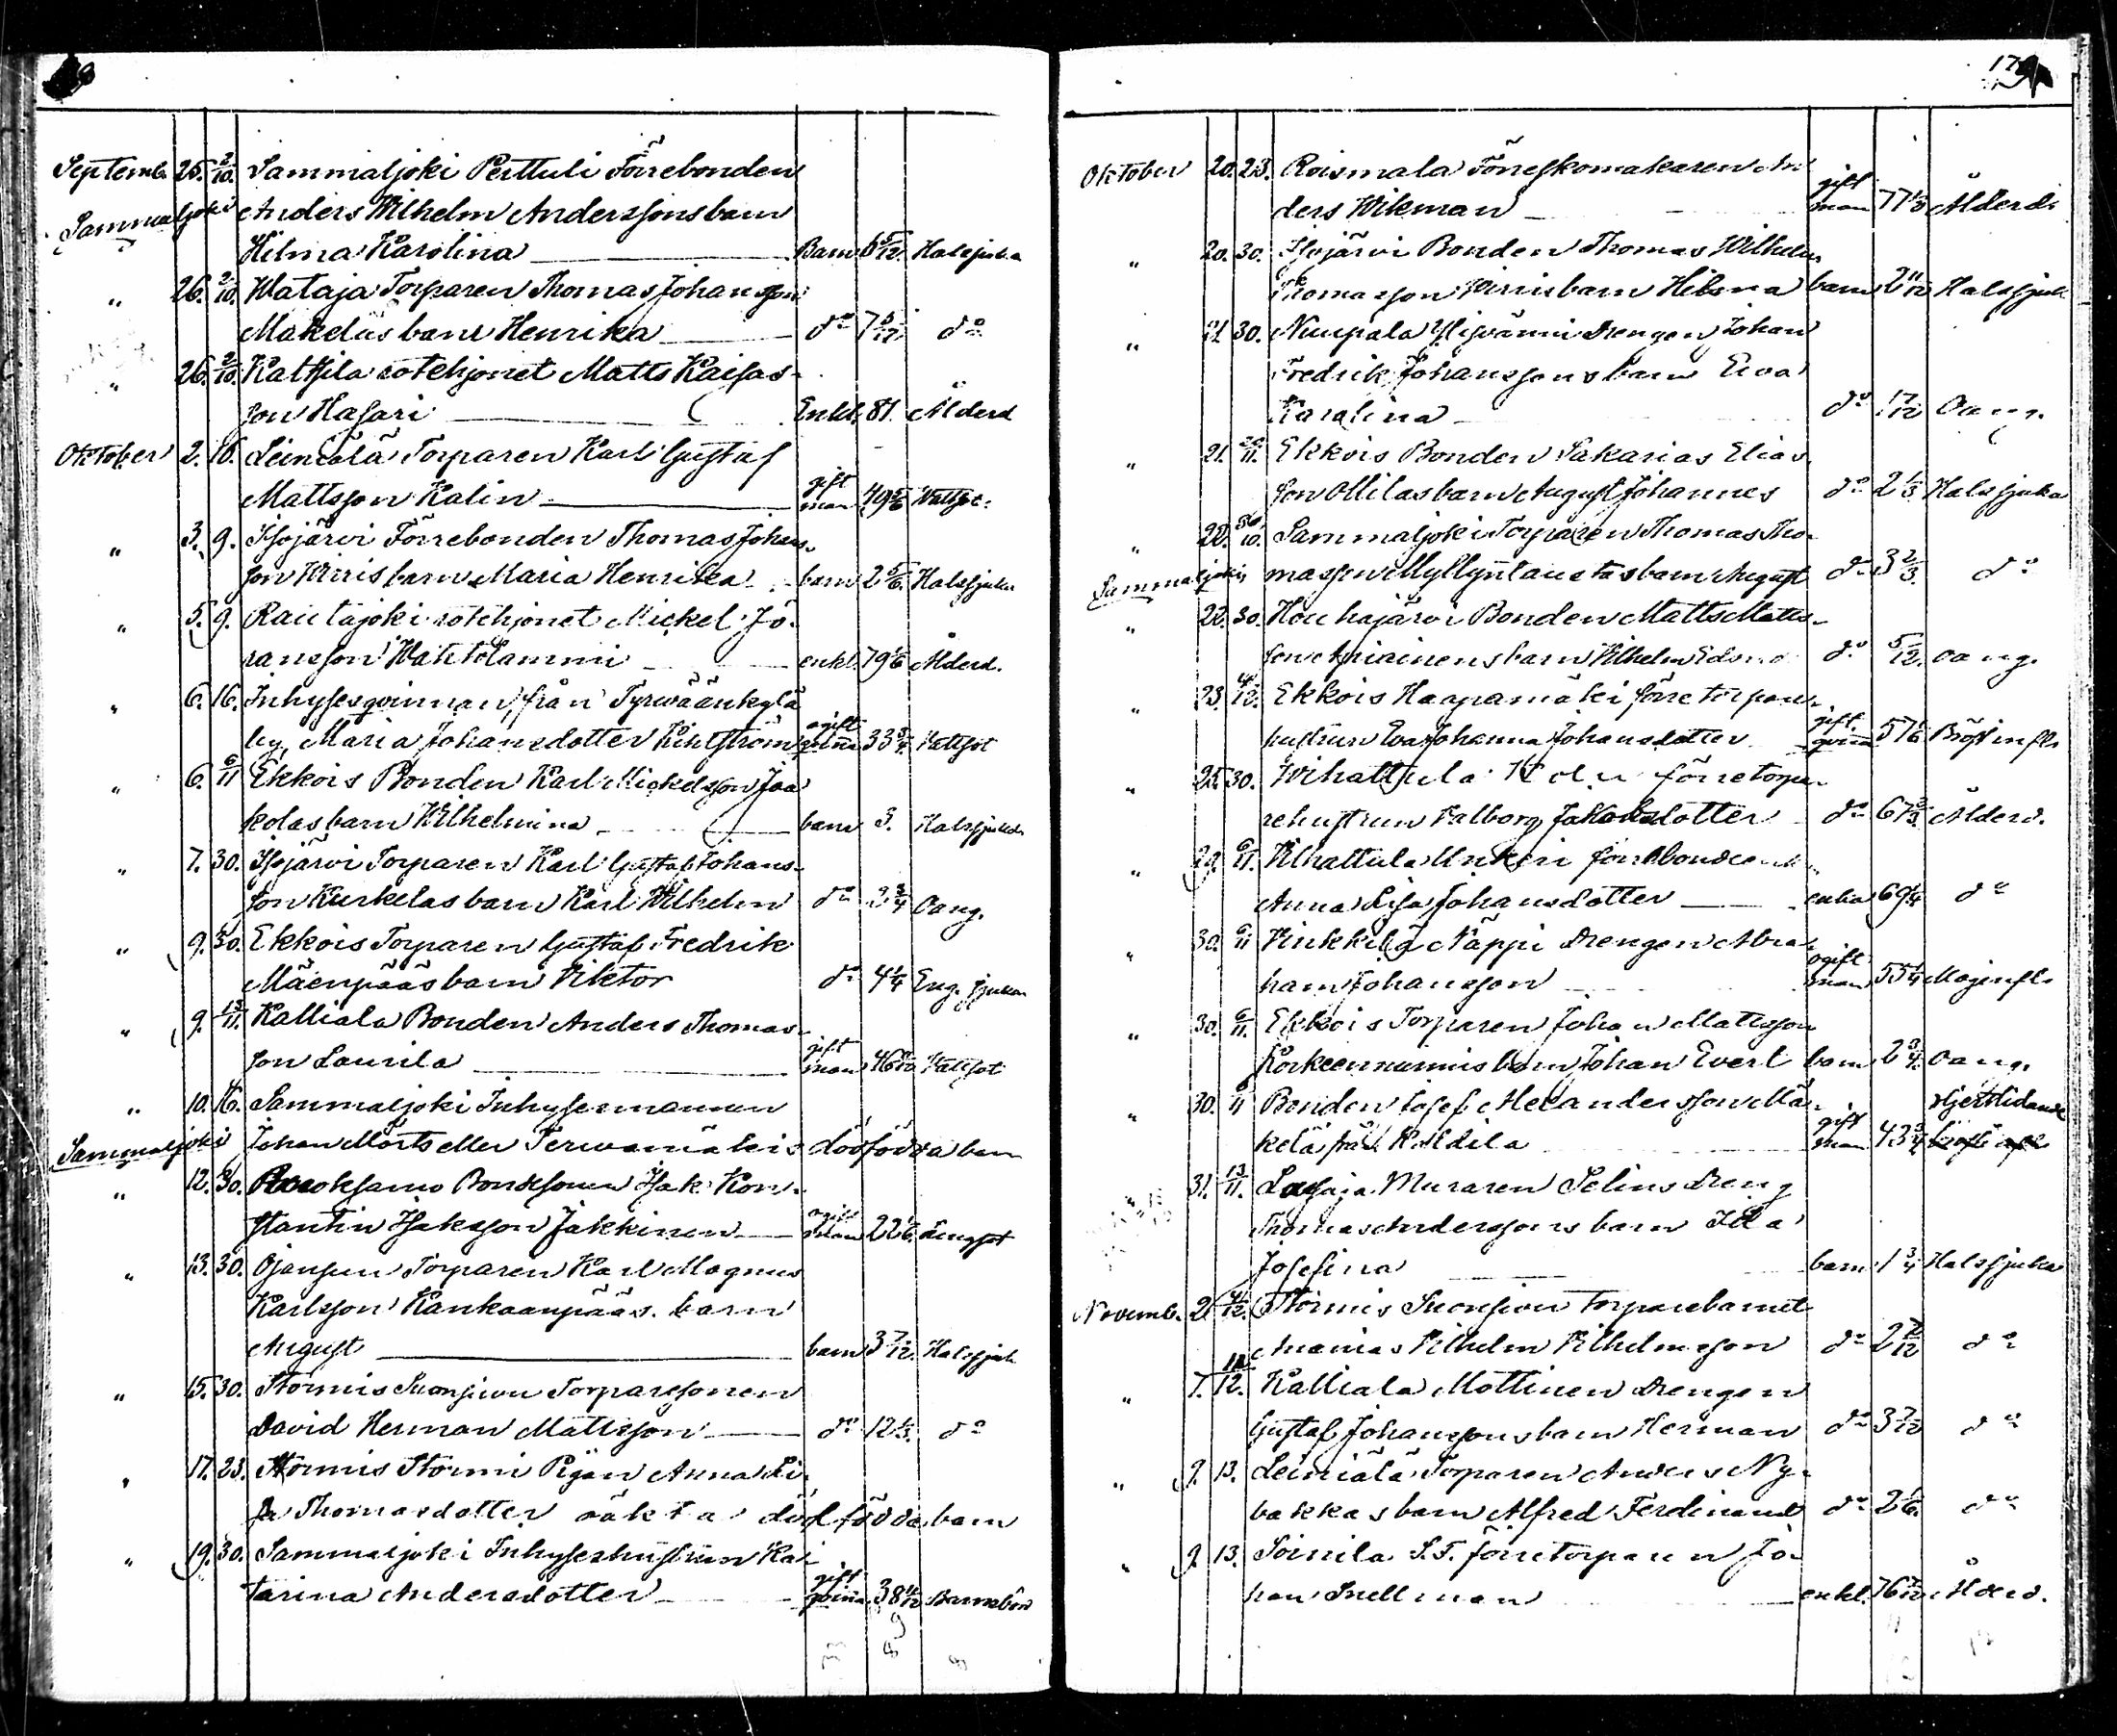 179
Septemb. 25. 2/10. Sammaljoki Perttuli Förrebonden
Sammaljoki Anders Wilhelm Anderssons barn
Hilma Karolina Barn 6 5/12. Halssjuka
" 26. 2/10. Wataja Torparen Thomas Johansson
Mäkeläs barn Henrika do 7 5/12 do
" 26. 2/10. Kaltsila rotehjonet Matts Kaisas-
son Hasari Enkl. 81. Ålderd
Oktober 2. 16. Leiniälä Torparen Karl Gustaf
Mattsson Kalin gift man 49 5/6 Wattsot.
" 3. 9. Isojärvi Förrebonden Thomas Johans-
son Wirris barn Maria Henrika barn 2 5/6. Halssjuka
" 5. 9. Rautajoki rotehjonet Mickel Jö-
ransson Wähtölammi enkl. 79 1/6 Ålderd.
" 6. 16. Inhyses qvinnan från Tyrwäänkylä
by, Maria Johansdotter Kihlström ogift qvinna 33 3/4 Wattsot
" 6. 6/11 Ekkois Bonden Karl Mickelsson Jaa
kolas barn Wilhelmina barn 3. Halssjuka
" 7. 30. Isojärvi Torparen Karl Gustaf Johans-
son Kurkelas barn Karl Wilhelm do 3 3/4 Oang.
" 9. 30. Ekkois Torparen Gustaf Fredrik
Mäenpääs barn Viktor do 4 1/4 Eng. sjukan
" 9. 13/11. Kalliala Bonden Anders Thomas-
son Laurila gift man 46 Wattsot
" 10. 16. Sammaljoki Inhysesmannen
Sammaljoki Johan Mårts eller Terwamäkis dödfödda barn
" 12. 30. Bondesonen Isak Kon-
stantin Isaksson Jakkinen ogift man 22 1/6 Lungsot
" 13. 30. Ojansuu Torparen Karl Magnus
Karlsson Kankaanpääs barn
August barn 3 7/12. Halssjuk
" 15. 30. Stormis Suonsivu Torparesonen
David Herman Mattsson do 12 1/3. do
" 17. 23. Stormis Stormi Pigan Anna Li-
sa Thomasdotter oäkta dödfödda barn
" 19. 30. Sammaljoki Inhyseshustrun Ka-
tarina Andersdotter gift qvinna 38 Barnsbörd
Oktober 20. 23. Roismala Förreskomakaren An-
ders Wikman gift man 77 Ålderd.
" 20. 30. Isojärvi Bonden Thomas Wilhelm
Thomasson Wirris barn Hilma barn 2 11/12 Halssjuk
" 21. 30. Nuupala Ylisvänni Drengen Johan
Fredrik Johanssons barn Eva
Karolina do 1 7/12 Oang.
" 21. 20/11. Ekkois Bonden Sakarias Elias-
son Ollilas barn August Johannes do 2 1/3. Halssjuka
" 22. 30/10. Sammaljoki Torparen Thomas Tho-
Sammaljoki masson Myllynlaustas barn August do 3 2/3. do
" 22. 30. Houhajärvi Bonden Matts Matts-
son Äpiainens barn Wilhelm do 5/12. oang.
" 23. 4/12. Ekkois Haapamäki förretorpare-
hustrun Eva Johanna Johansdotter gift qvinna 57 1/6 Bröstinfl.
" 25. 30. Wihattula förretorpa-
rehustrun Valborg Jakobsdotter do 67 2/3. Ålderd.
" 29. 6/11. Wihattula Unkeri förrebondeenk-
Anna Lisa Johansdotter enka 69 1/4 do
" 30. 6/11 Kinkkilä Näppi Drengen Abra-
ham Johansson ogift man 55 1/4 Maginfl.
" 30. 6/11. Ekkois Torparen Johan Mattsson
Korkeennurmis barn Johan Evert barn 2 3/4. Oang.
" 30. 6/11 Bonden Josef Melandersson Mä- Hjertlidande
kelä från Kaldila gift man 43 3/4
" 31. 13/11. Muraren Selins Dreng
Thomas Anderssons barn Ida
Josefina barn 1 3/4 Halssjuka
Novemb. 2. 4/12. Stormis Suonsivu Torparebarnet
Ananias Wilhelm Wilhelmsson do 2 7/12 do
" 7. 11/12. Kalliala Mottinen Drengen
Gustaf Johanssons barn Herman do 3 7/12 do
" 9. 13. Leiniälä Torparen Anders Ny-
bakkas barn Alfred Ferdinand do 2 1/6. do
" 9. 13. Soinila S. T. förretorparen Jo-
han Snellman enkl. 76 7/12 Ålderd.